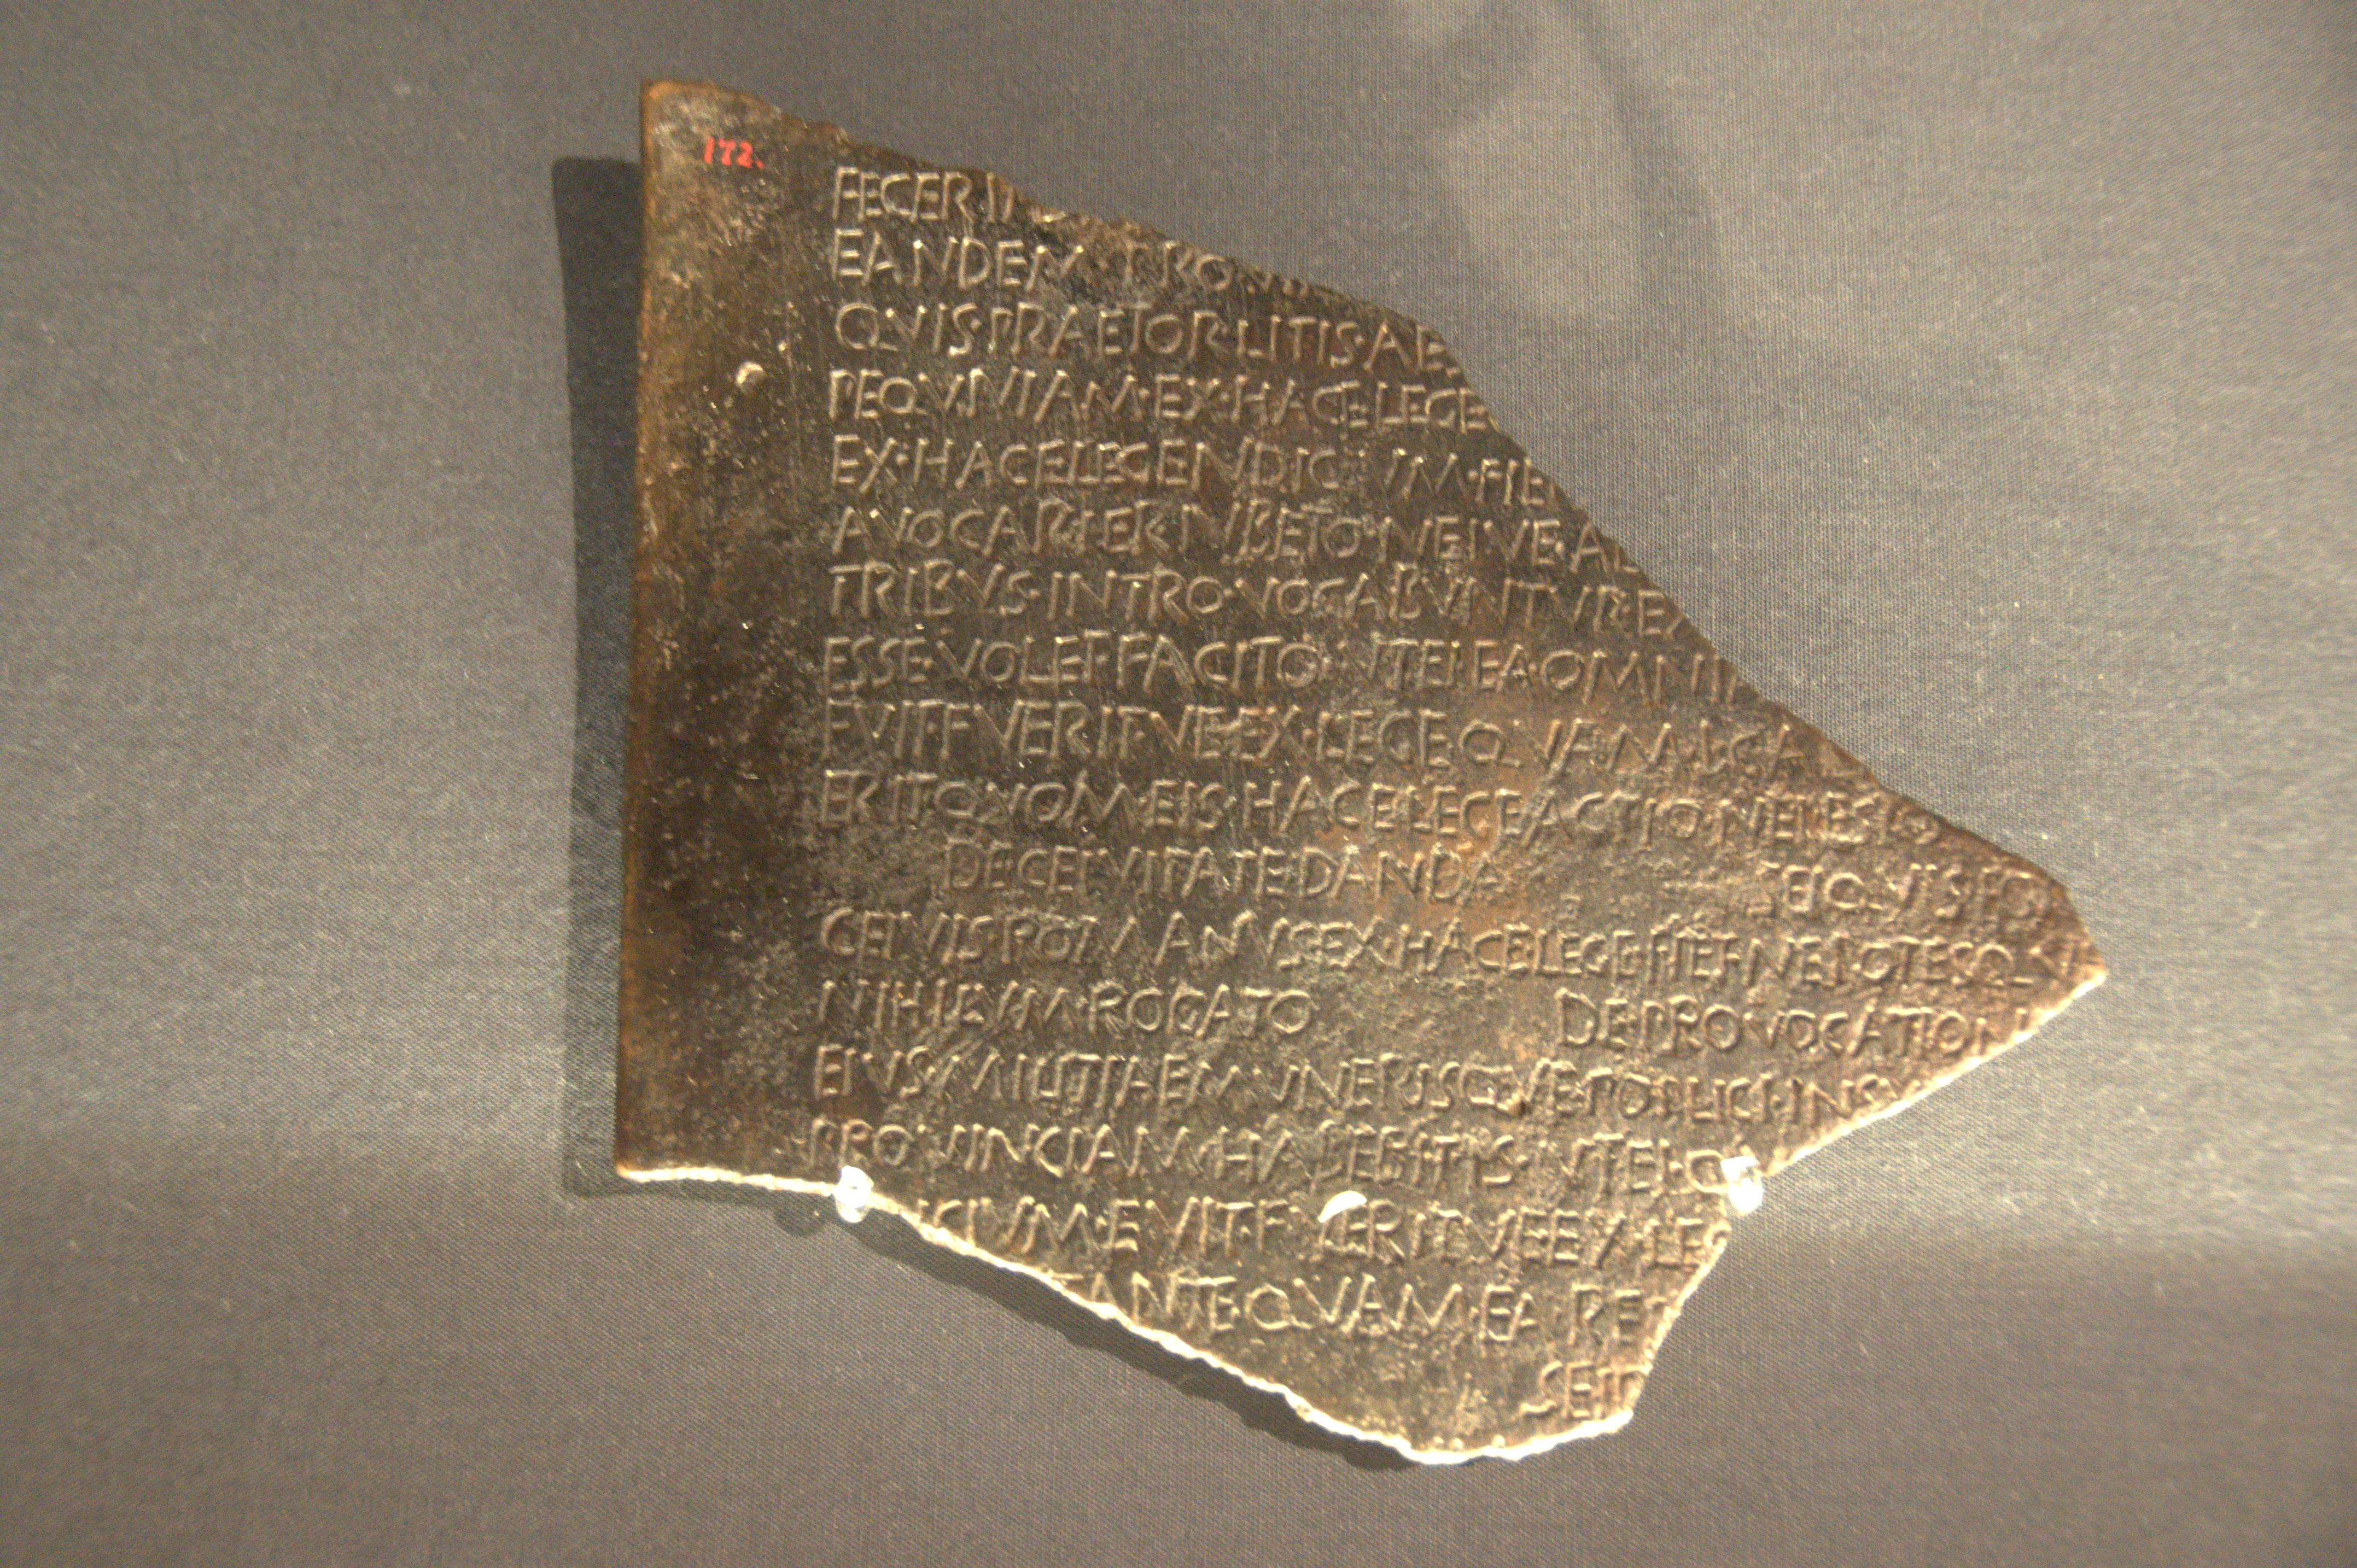 172.
FECERI
EANDEM PROV
QVIS·PRAETOR·LITIS·AES
PEQVNIAM·EX·HACE·LEGE
EX·HACE·LEGE·NDIC IVM·FIE
AVOCARIER·IVBETO·NEIVE·AB
TRIBVS·INTRO·VOCABVNTVR·EX
ESSE·VOLET·FACITO·VTEI·EA·OMNIA
EVIT·FVERITVE·EX·LEGE·QVAM·L·CA
ERIT·QVOM·EIS·HACE·LEGE·ACTIO·NEI·ES
DE·CEIVITATE·DANDA SEI·QVIS·EO
CEIVIS·ROMANVS·EX·HACE·LEGE·FIET·NEPOTESQV
DE·PROVOCATION
EIVS·MILITIAE·MVNERISQVE·POPLICI·IN·SV
PROVINCIAM·HABEBITIS·VTEI·
ICIVM·EVIT·FVERITVE·EX·LEG
T·ANTEQVAM·EA·RES
SEI